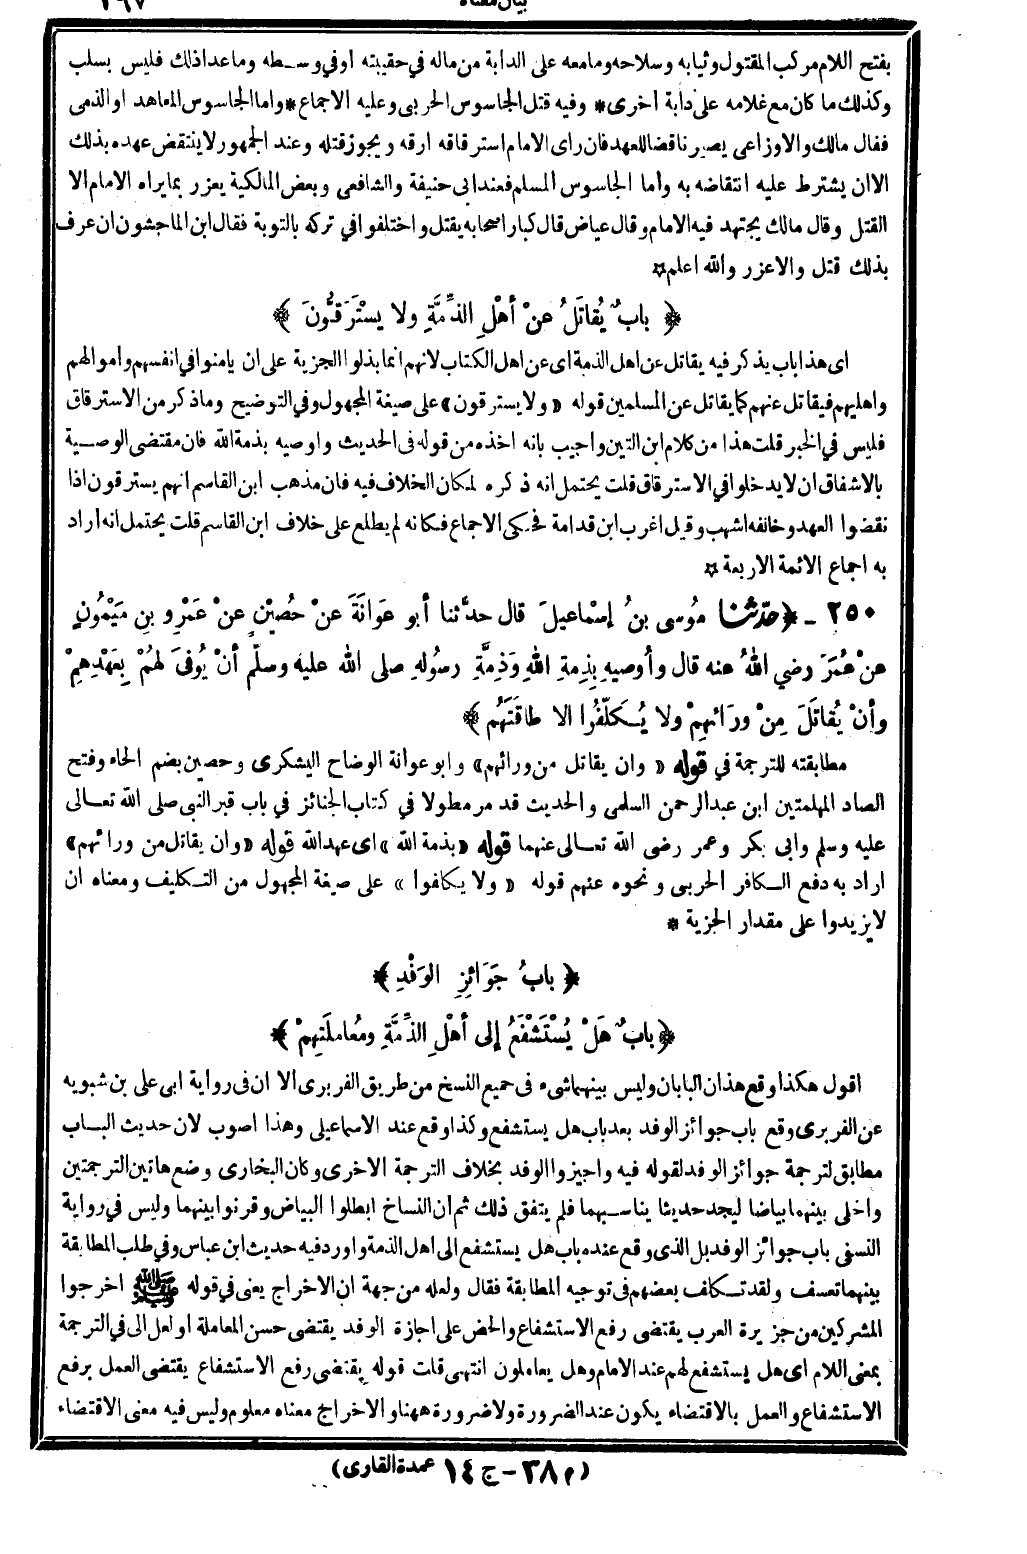 ٢٩٧
بفتح اللام مركب المقتول وثيابه وسلاحه ومامعه على الدابة من ماله في حقيبته او في وسطه وما عدا ذلك فليس بسلب
وكذلك ما كان مع غلامه على دابة اخرى * وفيه قتل الجاسوس الحربى وعليه الاجماع * واما الجاسوس المعاهد او الذمى
فقال مالك والاوزاعى يصير ناقضا للعهد فان راى الامام استرقاقه ارقه ويجوز قتله وعند الجمهور لا ينتقض عهده بذلك
الا ان يشترط عليه انتقاضه به واما الجاسوس المسلم فعند ابى حنيفة والشافعى وبعض المالكية يعزر بما يراه الامام الا
القتل وقال مالك يجتهد فيه الامام وقال عياض قال كبار اصحابه يقتل واختلفوا في تركه بالتوبة فقال ابن الماجشون ان عرف
بذلك قتل والا عزر والله اعلم ☆
﴿ بابٌ يُقاتَلُ عنْ أهْلِ الذِّمَّةِ ولا يسْتَرَقُّونَ ﴾
اى هذا باب يذكر فيه يقاتل عن اهل الذمة اى عن اهل الكتاب لانهم انما بذلوا الجزية على ان يامنوا في انفسهم وأموالهم
واهليهم فيقاتل عنهم كما يقاتل عن المسلمين قوله « ولا يسترقون » على صيغة المجهول وفي التوضيح وماذكر من الاسترقاق
فليس في الخبر قلت هذا من كلام ابن التين واجيب بانه اخذه من قوله فى الحديث واوصيه بذمة الله فان مقتضى الوصية
بالاشفاق ان لا يدخلوا في الاسترقاق قلت يحتمل انه ذكره لمكان الخلاف فيه فان مذهب ابن القاسم انهم يسترقون اذا
نقضوا العهد وخالفه اشهب وقيل اغرب ابن قدامة فحكى الاجماع فكانه لم يطلع على خلاف ابن القاسم قلت يحتمل انه اراد
به اجماع الائمة الاربعة ☆
٢٥٠ - ﴿ حدّثنا مُوسى بنُ إسْماعِيلَ قال حدَّثنا أبو عَوانَةَ عنْ حُصَيْنٍ عنْ عَمْرِو بنِ مَيْمُونٍ
عنْ عُمَرَ رضي اللهُ عنه قال وأُوصيهِ بِذِمةِ اللهِ وَذِمَّةِ رسُولهِ صلى الله عليه وسلّم أنْ يُوفىَ لهُمْ بِعَهْدِهِمْ
وأنْ يُقاتَلَ مِنْ ورَائِهِمْ ولا يُكلّفُوا الا طاقَتَهُم ﴾
مطابقته للترجمة في قوله « وان يقاتل من ورائهم » وابو عوانة الوضاح اليشكرى وحصين بضم الحاء وفتح
الصاد المهملتين ابن عبد الرحمن السلمى والحديث قد مر مطولا في كتاب الجنائز في باب قبر النبى صلى الله تعالى
عليه وسلم وابى بكر وعمر رضى الله تعالى عنهما قوله « بذمة الله » اى عهد الله قوله « وان يقاتل من ورائهم »
اراد به دفع الكافر الحربى ونحوه عنهم قوله « ولا يكلفوا » على صيغة المجهول من التكليف ومعناه ان
لا يزيدوا على مقدار الجزية *
﴿ بابُ جَوَائِزِ الوَفْدِ ﴾
﴿ بابٌ هَلْ يُسْتَشْفَعُ إلى أهْلِ الذِّمَّةِ ومُعاملَتِهِمْ ﴾
اقول هكذا وقع هذان البابان وليس بينهما شىء فى جميع النسخ من طريق الفربرى الا ان فى رواية ابى على بن شبويه
عن الفربرى وقع باب جوائز الوفد بعد باب هل يستشفع وكذا وقع عند الاسماعيلى وهذا اصوب لان حديث الباب
مطابق لترجمة جوائز الوفد لقوله فيه واجيزوا الوفد بخلاف الترجمة الاخرى وكان البخارى وضع هاتين الترجمتين
واخلى بينهما بياضا ليجد حديثا يناسبهما فلم يتفق ذلك ثم ان النساخ ابطلوا البياض وقرنوا بينهما وليس في رواية
النسفى باب جوائز الوفد بل الذى وقع عنده باب هل يستشفع الى اهل الذمة واورد فيه حديث ابن عباس وفي طلب المطابقة
بينهما تعسف ولقد تكلف بعضهم فى توجيه المطابقة فقال ولعله من جهة ان الاخراج يعنى في قوله ﷺ اخرجوا
المشركين من جزيرة العرب يقتضى رفع الاستشفاع والحض على اجازة الوفد يقتضى حسن المعاملة او لعل الى في الترجمة
بمعنى اللام اى هل يستشفع لهم عند الامام وهل يعاملون انتهى قلت قوله يقتضى رفع الاستشفاع يقتضى العمل برفع
الاستشفاع والعمل بالاقتضاء يكون عند الضرورة ولا ضرورة ههنا والاخراج معناه معلوم وليس فيه معنى الاقتضاء
( م ٣٨ - ج ١٤ عمدة القارى )